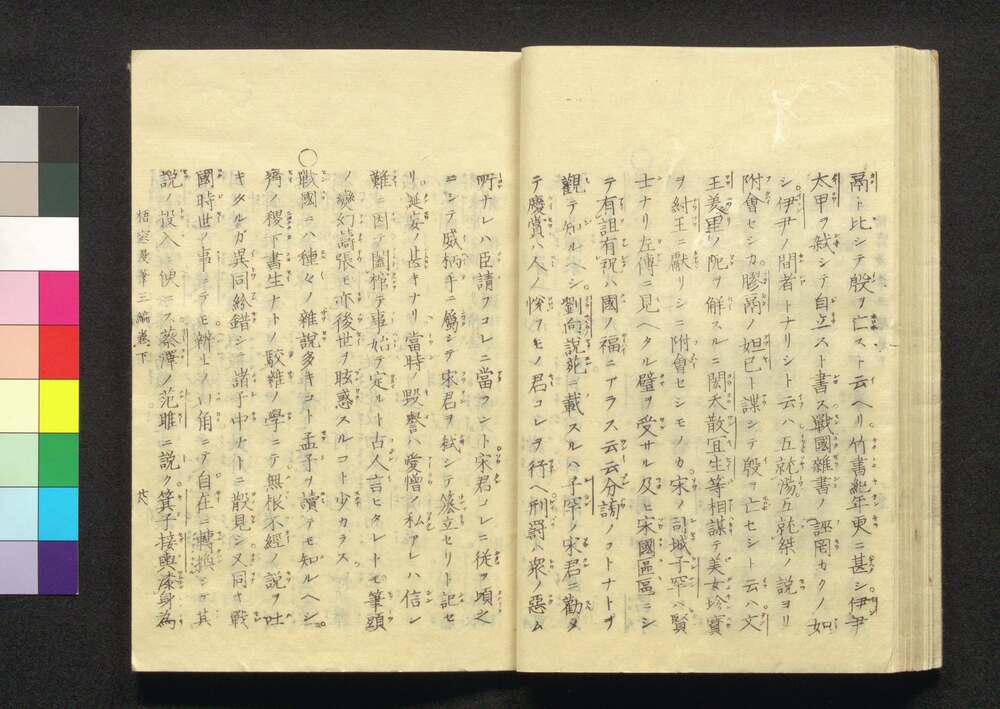 鬲ト比シテ殷ヲ亡スト云ヘリ竹書紀年更ニ甚シ伊尹
太甲ヲ弑シテ自立スト書ス戰國雜書ノ誣罔カクノ如
シ伊尹ノ間者トナリシト云ハ五就湯五就桀ノ説ヨリ
附會セシカ膠鬲ノ妲己ト謀シテ殷ヲ亡セシト云ハ文
王羑里ノ阨ヲ解スルニ閎夭散宜生等相謀テ美女珍寶
ヲ紂王ニ獻リシニ附會セシモノカ宋ノ司城子罕ハ賢
士ナリ左傳ニ見ヘタル璧ヲ受サル及ヒ宋國區區ニシ
テ有詛有祝ハ國ノ福ニアラス云云分謗ノコトナトヲ
觀テ知ルヘシ劉向説苑ニ載スルハ子罕ノ宋君ニ勸タ
テ慶賞ハ人ノ悅フモノ君コレヲ行ヘ刑罰ハ衆ノ惡ム
所ナレハ臣請フコレニ當ラント宋君コレニ從ヲ頃之
ニシテ威柄手ニ屬シテ宋君ヲ弑シテ簒立セリト記セ
リ誕妄ノ甚キナリ當時ノ毀譽ハ愛憎ノ私アレハ信シ
難ニ因テ闔棺テ事始テ定ルト古人言ヒタレトモ筆頭
ノ變幻譸張モ亦後世ヲ眩惑スルコト少カラス
〇戰國ニハ種々ノ雜說多キコト孟子ヲ讀テモ知ルヘシ
齊ノ稷下書生ナトノ駁雜ノ學ニテ無根不經ノ說ヲ吐
キタルガ異同紛錯シテ諸子中ナトニ散見シ又同キ戰
國時世ノ事ニテモ辨士ノ口角ニテ自在ニ轉換シテ其
說ノ投入ニ便ニス蔡澤ノ范雎ニ說ク箕子接輿漆身為
梧窓漫筆三編卷下